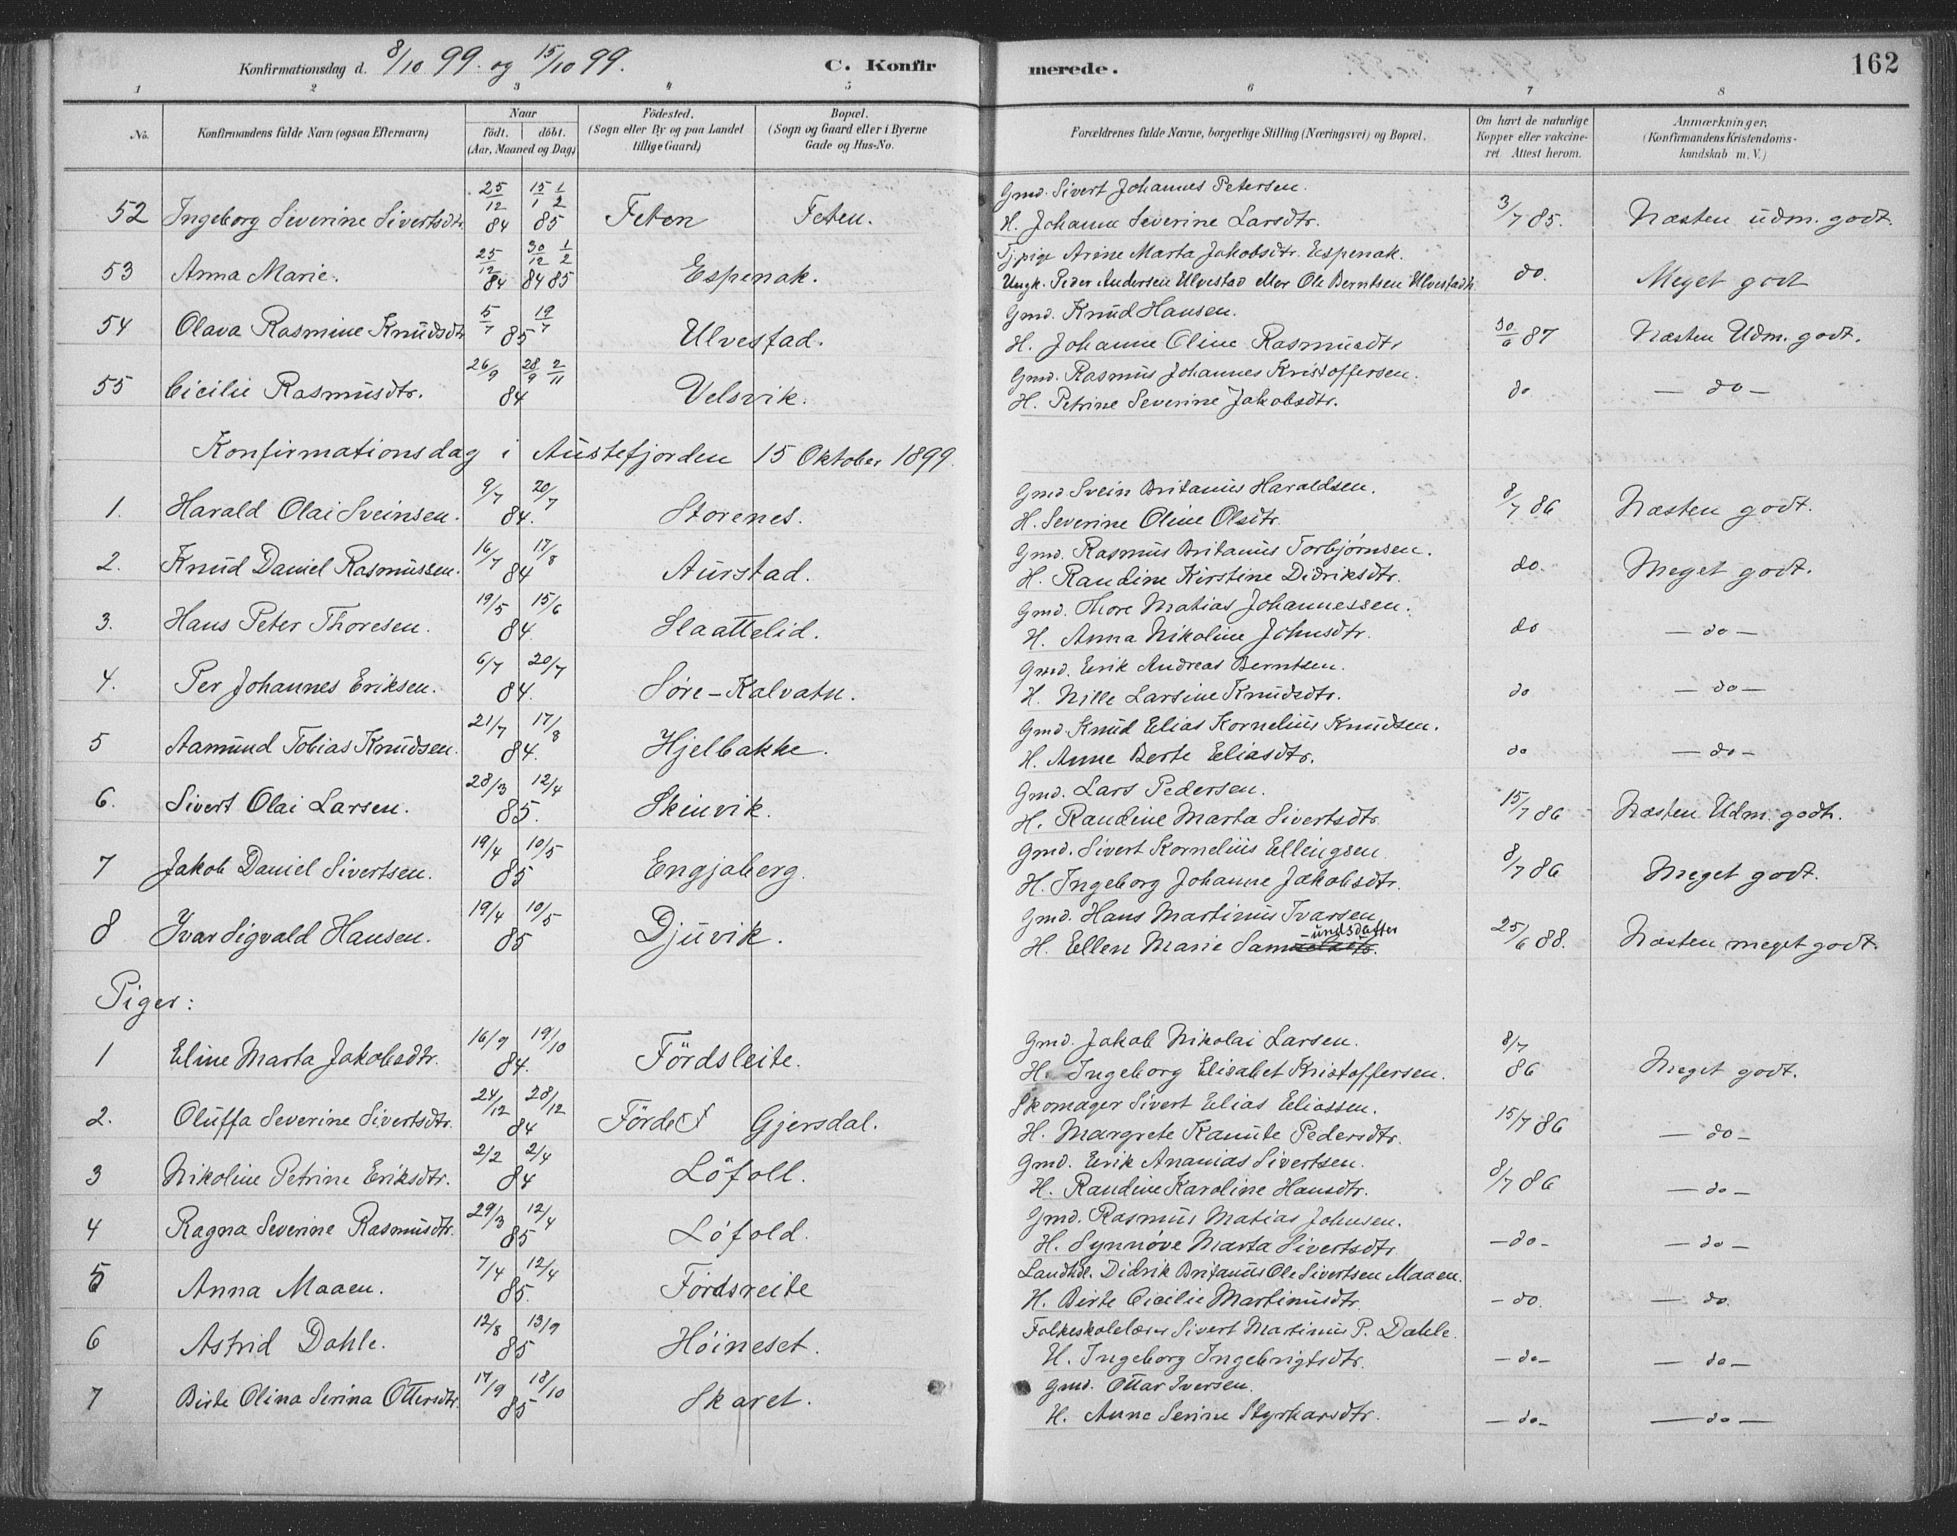 Konfirmationsdag d. 8/10 99. og 15/10 99.
C. Konfirmerede.
162
1 2 3 4 5 6 7 8
No.
Konfirmandens fulde Navn (ogsaa Efternavn)
Naar
födt. döbt.
(Aar, Maaned og Dag)
Födested.
(Sogn eller By og paa Landet
tillige Gaard)
Bopæl.
(Sogn og Gaard eller i Byerne
Gade og Hus-No.
Forældrenes fulde Navne, borgerlige Stilling (Næringsvei) og Bopæl.
Om havt de naturlige
Kopper eller vakcine-
ret Attest herom.
Anmærkninger.
(Konfirmandens Kristendoms-
kundskab m. V.)
Gmd. Sivert Johannes Petersen.
52 Ingeborg Severine Sivertsdtr. 25/12 84 15/1 1/2 85 Feten Feten. H. Johanne Severine Larsdtr. 3/7 85. Næsten udm. godt
Tj.pige Arine Marta Jakobsdtr. Espenak.
53 Anna Marie. 25/12 84 30/12 84 1/2 85 Espenak. Ungk. Peder Andersen Ulvestad eller Ole Berntsen Ulvestad do. Meget godt
Gmd. Knud Hansen.
54 Olava Rasmine Knudsdtr 5/7 19/7 85 Ulvestad. H. Johanne Oline Rasmusdtr 30/6 87 Næsten Udm. godt.
Gmd. Rasmus Johannes Kristoffersen.
55 Cicilie Rasmusdtr. 26/9 28/9 2/11 84 Velsvik. H. Petrine Severine Jakobsdtr. do — do —
Konfirmationsdag i Austefjorden 15 Oktober 1899.
Gmd Svein Britanus Haraldsen.
1. Harald Olai Sveinsen. 9/7 20/7 84. Storenes. H. Severine Oline Olsdtr. 8/7 86 Næsten godt.
Gmd. Rasmus Britanus Torbjørnsen.
2. Knud Daniel Rasmussen. 16/7 17/8 84 Aurstad. H. Raudine Kirstine Didriksdtr. do. Meget godt.
Gmd. Thore Matias Johannessen.
3. Hans Peter Thoresen. 19/5 15/6 84. Slaattelid. H. Anna Nikoline Johnsdtr. do — do —
Gmd. Erik Andreas Berntsen.
4. Per Johannes Eriksen. 6/7 20/7 84. Söre-Kalvatn. H. Nille Larsine Knudsdtr. do — do —
Gmd. Knud Elias Kornelius Knudsen.
5 Aamund Tobias Knudsen. 21/7 17/8 84. Hjelbakke. H. Anne Berte Eliasdtr. do — do —
Gmd. Lars Pedersen.
6. Sivert Olai Larsen. 28/3 12/4 85. Skinvik. H. Raudine Marta Sivertsdtr. 15/7 86 Næsten Udm. godt.
Gmd. Sivert Kornelius Ellingsen
7 Jakob Daniel Sivertsen. 19/4 10/5 85 Engjaberg. H. Ingeborg Johanne Jakobsdtr. 8/7 86 Meget godt.
Gmd. Hans Martinus Ivarsen
-undsdatter
8 Ivar Sigvald Hansen. 19/4 10/5 85 Djuvik. H. Ellen Marie Samuelsdtr. 25/6 88. Næsten meget godt.
Piger:
Gmd. Jakob Nikolai Larsen.
1 Eline Marta Jakobsdtr. 16/9 19/10 84. Fördsleite. H. Ingeborg Elisabet Kristoffersen. 8/7 86 Meget godt.
Skomager Sivert Elias Eliassen.
2. Oluffa Severine Sivertsdtr. 24/12 28/12 84 Förde Gjersdal. H. Margrete Kamite Pedersdtr. 15/7 86 — do —
Gmd. Erik Ananias Sivertsen.
3 Nikoline Petrine Eriksdtr. 2/2 2/4 84 Löfoll. H. Raudine Karoline Hansdtr. 8/7 86 — do —
Gmd. Rasmus Matias Johnsen.
4 Ragna Severine Rasmusdtr. 29/3 12/4 85 Löfold. H. Synnøve Marta Sivertsdtr — do — — do —
Landhdl. Didrik Britanus Ole Sivertsen Maaen.
5 Anna Maaen. 7/4 12/4 85. Fördsreite H. Birte Cicilie Martinusdtr. — do. — do.
Folkeskolelærer Sivert Martinus P. Dahle.
6 Astrid Dahle. 12/8 13/9 85 Höineset. H. Ingeborg Ingebrigtsdtr. — do — — do —
Gmd. Ottar Iversen.
7 Birte Olina Serina Ottersdtr. 17/9 18/10 85 Skaret. H. Anne Serine Styrkarsdtr. — do — — do —